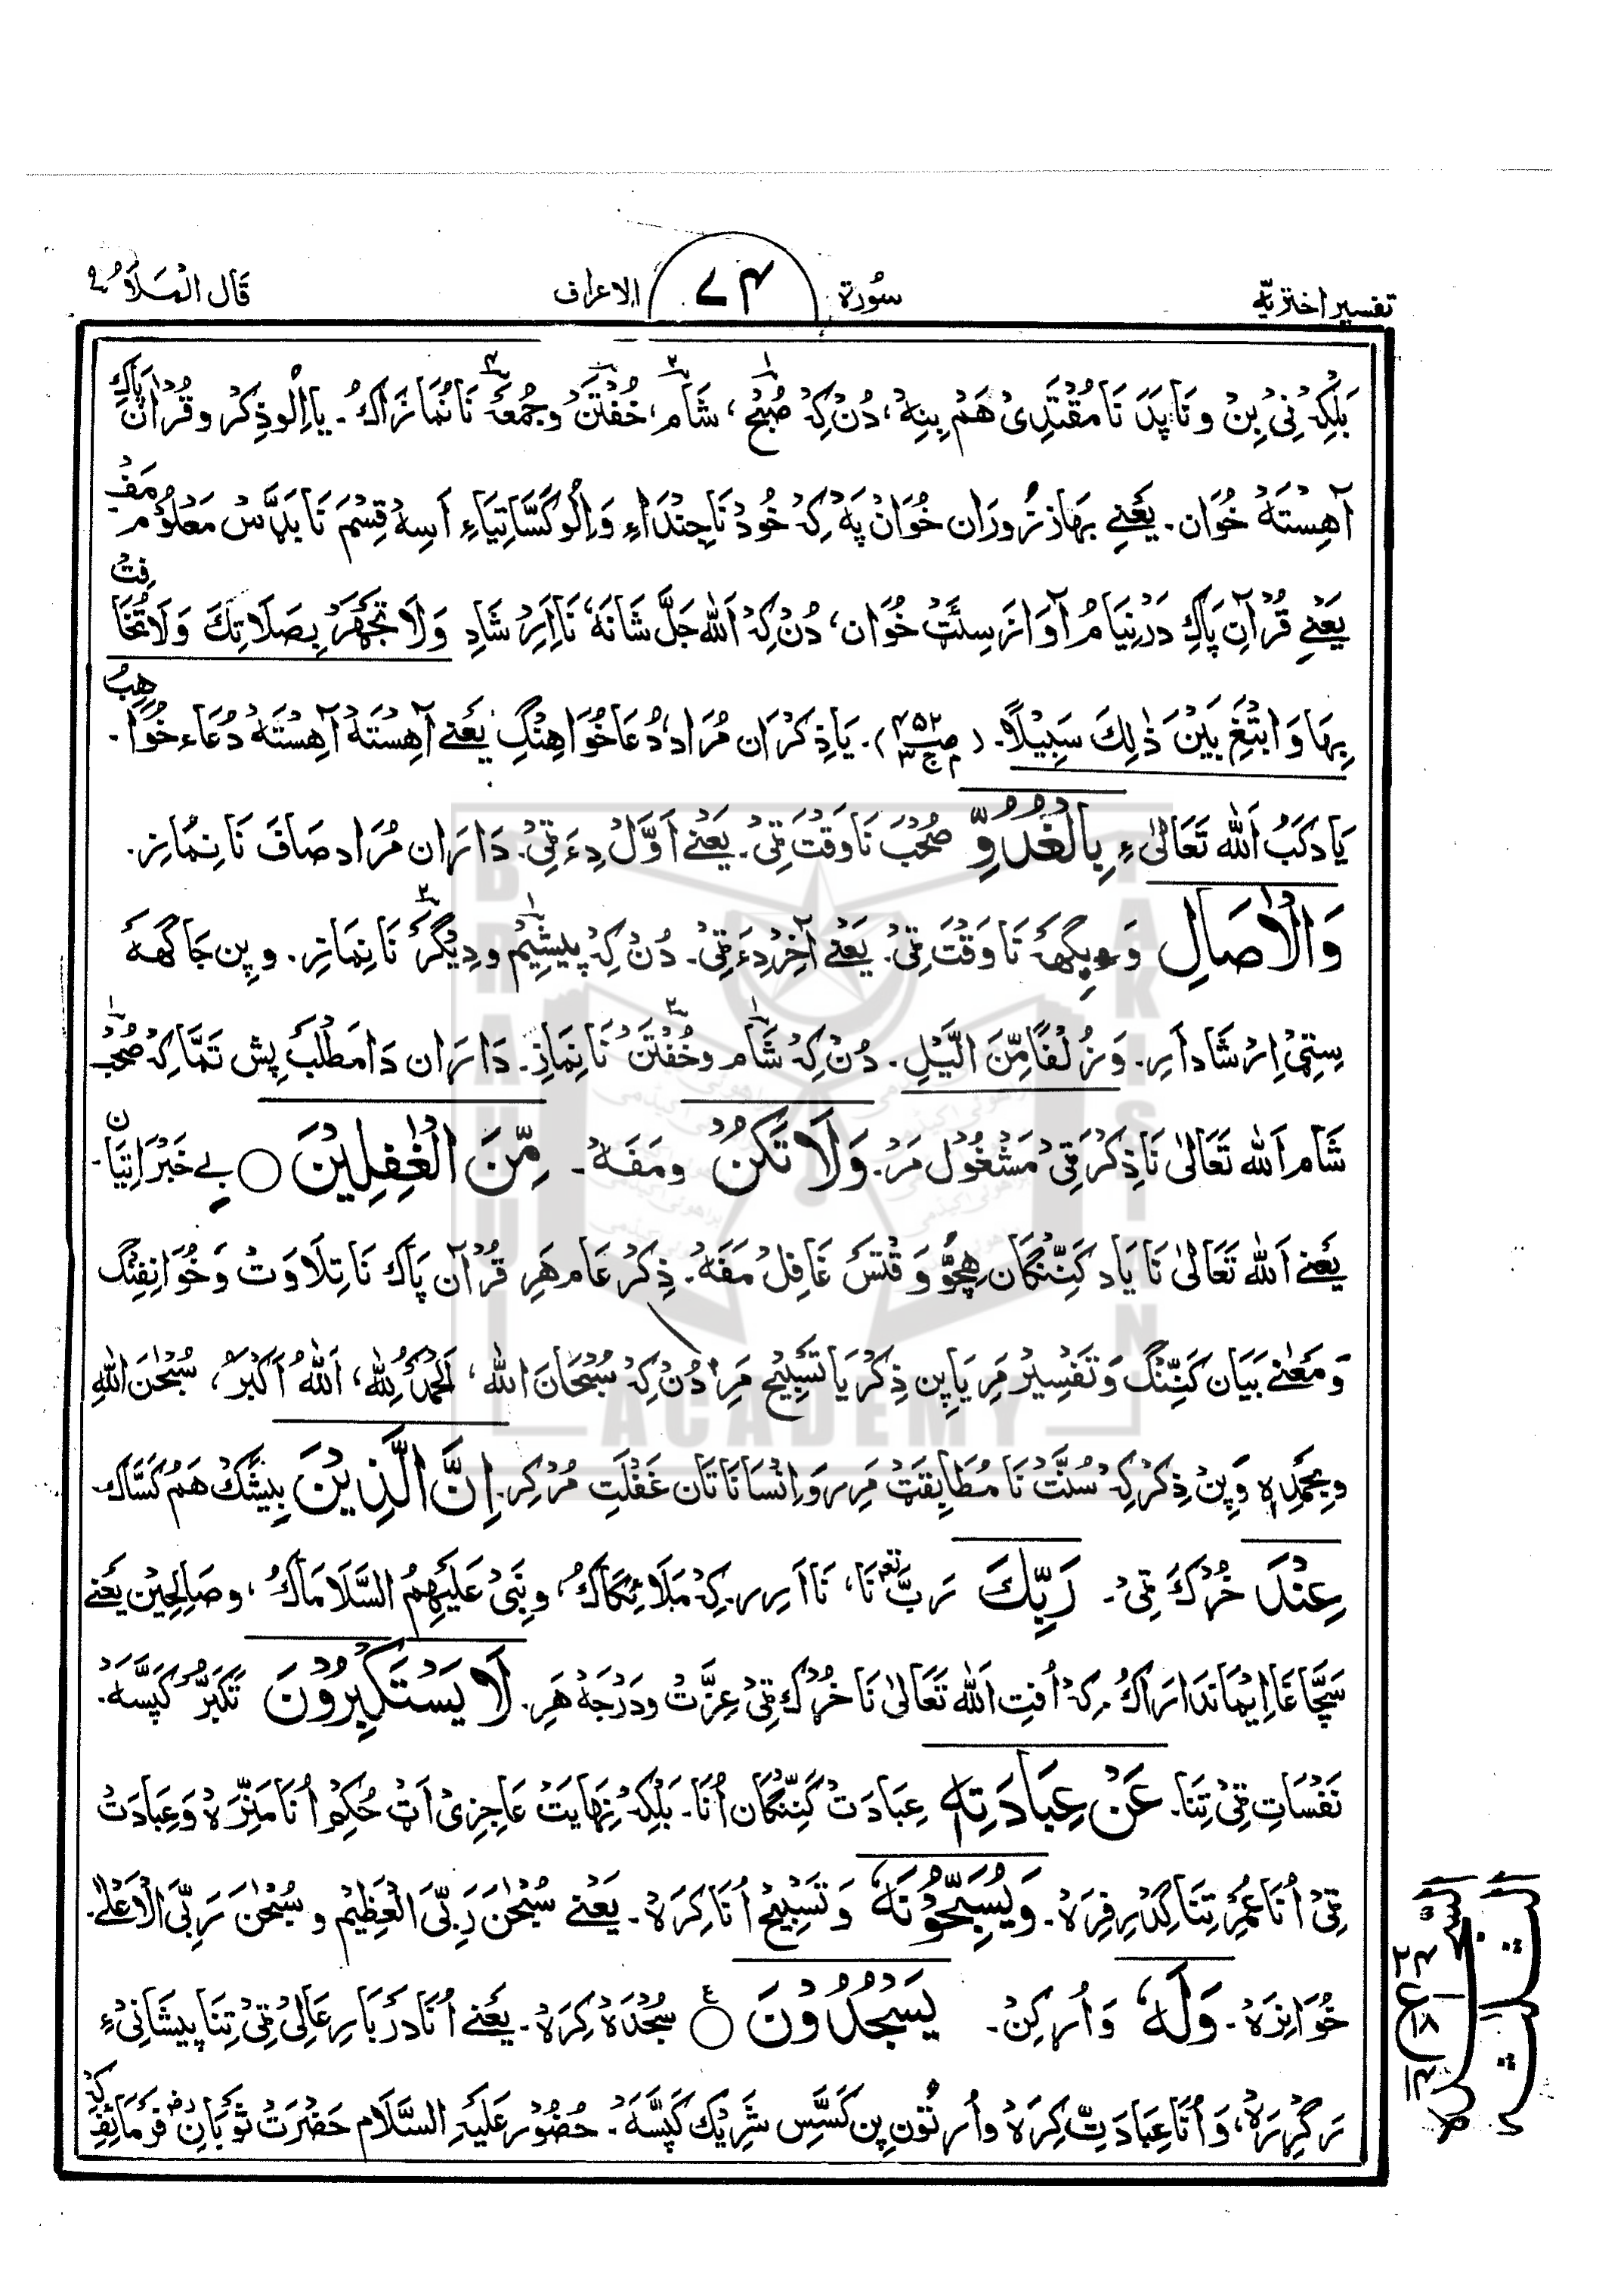 تفسیر اختریّه
سُورة
۷۴
الاعراف
قَالَ الْمَلَاُ ۹
بَلکِہ نِیْ بِن و نَا پَدَ نَا مُقْتَدِیْ هَم بِینِہ، دُن کِہ صُبْح، شَام، خُفْتَن وجُمعَہ نَا نُمَازَاکُ۔ یا اِلو ذِکر و قُرآن پَاکِ
آهِستَہ خُوَان۔ یَعْنِے بَهاز زورَان خُوان پہ کِہ خُود نَا جِندَاءِ وَ اِلو کَسَّاتِیَاءِ اَسِہ قِسْمَ نَا بدلَّاس مَعلُوم مَفُ
یَعْنِے قُرْآنِ پَاکِ دَرْنِیَام آوازِ سِئَت خُوَان، دُن کِہ اَللّٰہ جَلَّ شَانَہٗ نَا اِرشَادِ وَلَا تَجْهَرْ بِصَلَاتِكَ وَلَا تُخَافِتْ
بِهَا وَابْتَغِ بَيْنَ ذٰلِكَ سَبِيْلًا۔ یَا ذِکرَان مُرَاد، دُعَا خُوَاهِنگِ یَعْنے آهِستَہ آهِستَہ دُعَاء خُوَاهِبُ۔
یَاد کَبُ اَللّٰہ تَعَالیٰءِ بِالْغُدُوِّ صُحْبَ نَا وَقْتَ ٹِی۔ یَعْنے اَوَّل دِءَ ٹِی۔ دَارَان مُرَاد صَافَ نَا نِمَازِ۔
وَالْاٰصَالِ وَ بِیگهَہ نَا وَقْتَ ٹِی۔ یَعْنے آخِر دِءَ ٹِی۔ دُن کِہ پِیشِیْم و دِیگرَ نَا نِمَازِ۔ و پِن جَاگَهَہ
سِیٹی اِرْشَاد اَرِ۔ وَ زُلَفًا مِّنَ الَّيْلِ۔ دُن کِہ شَام و خُفْتَن نَا نِمَازِ۔ دَارَان دَا مَطْلَب پِیش تَمَّا کِہ صُحْبَ
شَام اَللّٰہ تَعَالیٰ نَا ذِکرَ ٹِی مَشْغُول مَرُ۔ وَلَا تَكُنْ و مَفَہ۔ مِّنَ الْغٰفِلِيْنَ ○ بے خَبْرَاتِیَان۔
یَعْنے اَللّٰہ تَعَالیٰ نَا یَاد کَنِّنگَان هِچّو وَقْتَس غَافِل مَفَہ۔ ذِکر عَام هَرِ قُرْآن پَاکَ نَا تِلَاوَت و خُوَانِفِنگ
وَ مَعْنٰے بَیَان کَنِّنگ وَ تَفْسِیر مَرِ یَا پِن ذِکر یَا تَسْبِیح مَرِ دُن کِہ سُبْحَانَ اللّٰہ، اَلْحَمْدُ لِلّٰہ، اَللّٰہُ اَکْبَر، سُبْحٰنَ اللّٰهِ
وَبِحَمْدِہٖ وَ پِن ذِکر کِہ سُنَّت نَا مُطَابِقَت مَرِر وَ اِنْسَانَاتَان غَفْلَتِ مُر کِر۔ اِنَّ الَّذِيْنَ بِیشَک هَم کَسَّاک۔
عِنْدَ خُڑکَ ٹِی۔ رَبِّكَ رَبَّ نَا، نَا اَرِر۔ کِہ مَلَائِکَاکُ، و نَبِی عَلَیْهِمُ السَّلَامَاکُ، و صَالِحِیْن یَعْنے
سَچَّا غَا اِیْمَاندَارَاکُ۔ کِہ اُفتِ اَللّٰہ تَعَالیٰ نَا خُڑکَ ٹِی عِزَّت و دَرْجَہ هَرِ۔ لَا يَسْتَكْبِرُوْنَ تَکَبُّر کَپِّسَہ۔
نَفْسَاتِ ٹِی تِنَا۔ عَنْ عِبَادَتِهٖ عِبَادَت کَنِّنگان اُنَا۔ بَلْکِہ نِهَایَت عَاجِزِی اَٹ حُکم اُنَا مَنِّرَہ وَ عِبَادَت
ٹِی اُنَا عُمْرِ تِنَا گِدْرِفِرَہ۔ وَيُسَبِّحُوْنَهٗ وَ تَسْبِیح اُنَا کِرَہ۔ یَعْنے سُبْحٰنَ رَبِّیَ الْعَظِیْم و سُبْحٰنَ رَبِّیَ الْاَعْلٰے۔
خُوَانِرَہ۔ وَلَهٗ وَ اُر کِن۔ يَسْجُدُوْنَ ○ سُجْدَہ کِرَہ۔ یَعْنے اُنَا دَرْبَارِ عَالِی ٹِی تِنَا پِیشَانِیءِ
رَگِڑِرَہ، وَ اُنَا عِبَادَتِ کِرَہ وَ اُر تُون پِن کَسَّس شَرِیک کَپِّسَہ۔ حُضُور عَلَیْہِ السَّلَام حَضْرَت ثَوْبَان رض فَرمَائِفِ کِہ